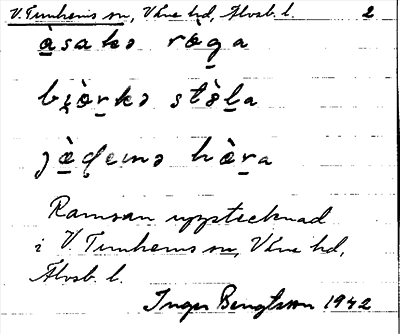 V. Tunhems sn, Väne hd, Älvsb. l. 2
àsakə ròga
bjòrkə stòla
jæ̀demsə hæ̀ra
Ramsan upptecknad
i V. Tunhems sn, Väne hd,
Älvsb. l.
Inger Bengtsson 1942